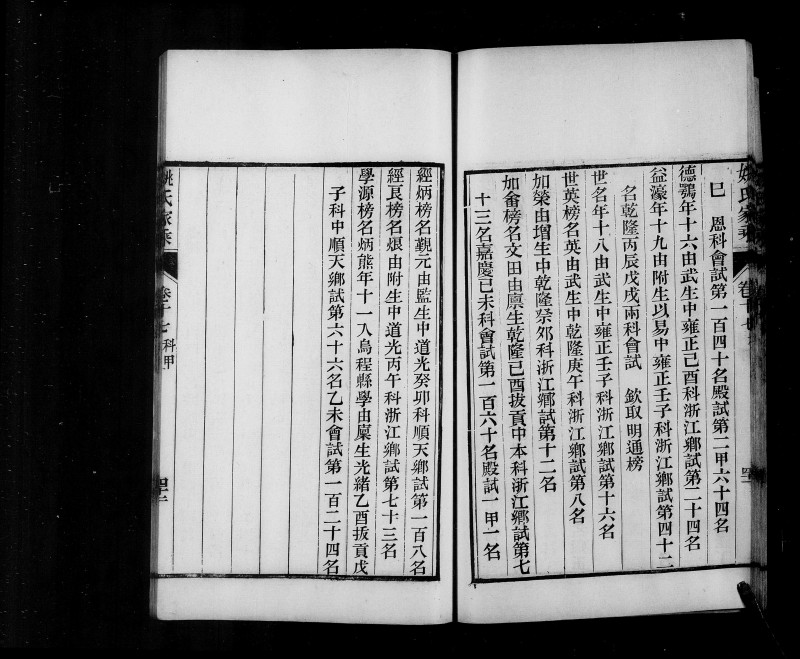 巳　恩科會試第一百四十名殿試第二甲六十四名
德鶚年十六由武生中雍正己酉科浙江鄉試第二十四名
益濠年十九由附生以易中雍正壬子科浙江鄉試第四十二
名乾隆丙辰戊戌兩科會試　欽取明通榜
世名年十八由武生中雍正壬子科浙江鄉試第十六名
世英榜名英由武生中乾隆庚午科浙江鄉試第八名
如榮由增生中乾隆癸夘科浙江鄉試第十二名
如畬榜名文田由廪生乾隆己酉拔貢中本科浙江鄉試第七
十三名嘉慶己未科會試第一百六十名殿試一甲一名
姚氏家乘
卷十七
科甲
經炳榜名覲元由監生中道光癸夘科順天鄉試第一百八名
經艮榜名煛由附生中道光丙午科浙江鄉試第七十三名
學源榜名炳熊年十一入烏程縣學由廩生光緒乙酉拔貢戊
子科中順天鄉試第六十六名乙未會試第一百二十四名